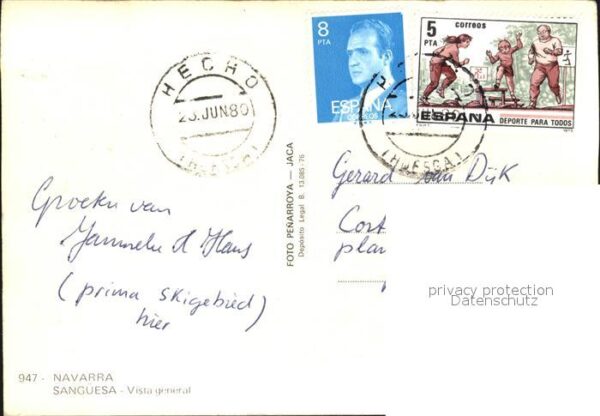 8
PTA
ESPAÑA
CORREOS
5
PTA
correos
ESPAÑA
DEPORTE PARA TODOS
HECHO
23.JUN80
(HUESCA)
(HUESCA)
FOTO PEÑARROYA — JACA
Depósito Legal B. 13.085-76
Groeten van
Janneke & Hans
(prima skigebied)
hier
Gerard van Dijk
privacy protection
Datenschutz
947 - NAVARRA
SANGÜESA - Vista general